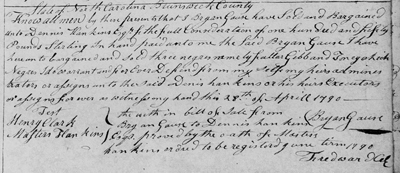 State of North Carolina Brunswick County
Know all men by these presents that I Bryan Gause have Sold and Bargained
unto Dennis Hankins Esqr for the full Consideration of one hundred and fifty
Pounds Sterling In hand paid unto me the Said Bryan Gause I have
have to Bargained and Sold three negroes namely
Negroes I do warrant and for Ever Defend from my Self my heirs
trators or assigns unto the Said Dennis Hankins or his heirs Executors
or assigns for ever as witness my hand this 28th of April 1790
Test
Henry Clark
Masters Hankins
the within bill of Sale from
Bryan Gause to Dennis Hankins
Esqr. proved by the oath of Masters
Hankins ordered to be registered June term 1790
Bryan Gause